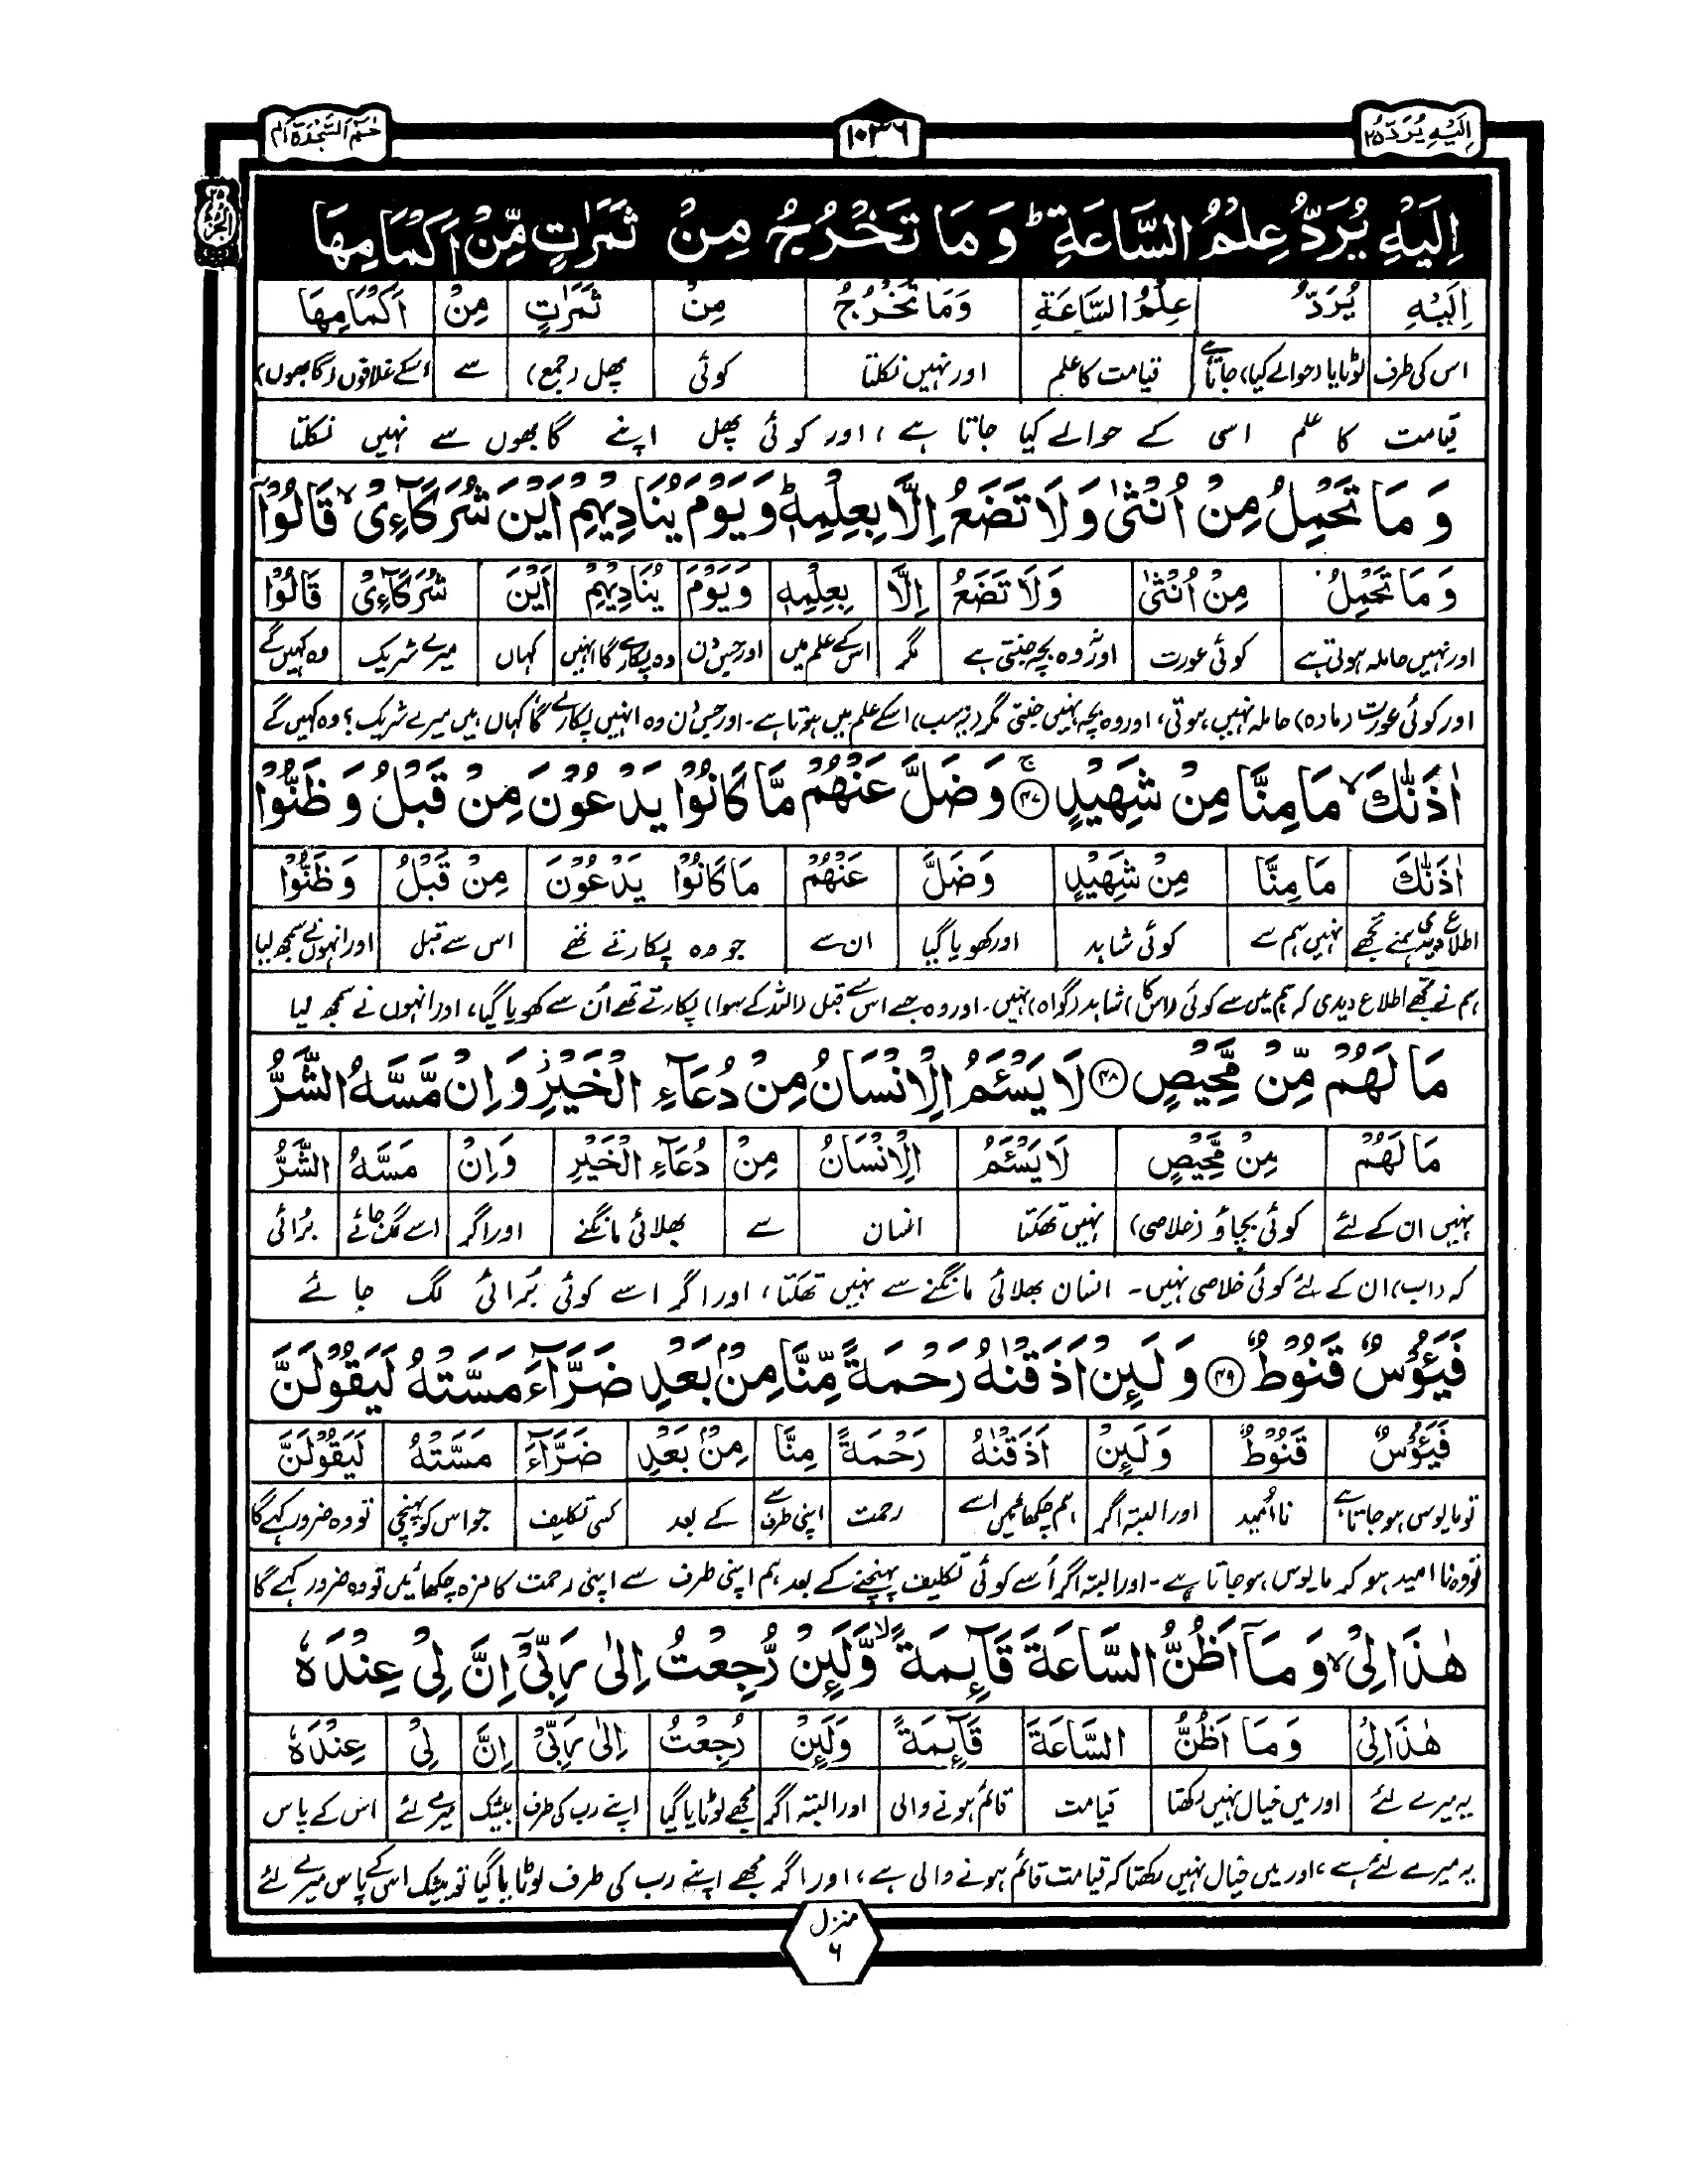 اِلَیْهِ یُرَدُّ ۲۵
۱۰۳۶
حٰمٓ السَّجْدَة ۴۱
اِلَیْهِ یُرَدُّ عِلْمُ السَّاعَةِ ؕ وَ مَا تَخْرُجُ مِنْ ثَمَرٰتٍ مِّنْ اَكْمَامِهَا
اِلَیْهِ یُرَدُّ عِلْمُ السَّاعَةِ وَمَا تَخْرُجُ مِنْ ثَمَرٰتٍ مِنْ اَكْمَامِهَا
اس کی طرف لوٹایا (حوالے کیا) جاتا ہے قیامت کا علم اور نہیں نکلتا کوئی پھل (جمع) سے اسکے غلافوں (گابھوں)
قیامت کا علم اسی کے حوالے کیا جاتا ہے، اور کوئی پھل اپنے گابھوں سے نہیں نکلتا
وَ مَا تَحْمِلُ مِنْ اُنْثٰی وَلَا تَضَعُ اِلَّا بِعِلْمِهٖ ؕ وَ یَوْمَ یُنَادِیْهِمْ اَیْنَ شُرَكَآءِیْ ۙ قَالُوْۤا
وَمَا تَحْمِلُ مِنْ اُنْثٰی وَلَا تَضَعُ اِلَّا بِعِلْمِهٖ وَیَوْمَ یُنَادِیْهِمْ اَیْنَ شُرَكَآءِیْ قَالُوْۤا
اور نہیں حاملہ ہوتی ہے کوئی عورت اور نہ وہ بچہ جنتی ہے مگر اس کے علم میں اور جس دن وہ پکارے گا انہیں کہاں میرے شریک وہ کہیں گے
اور کوئی عورت (مادہ) حاملہ نہیں ہوتی، اور وہ بچہ نہیں جنتی مگر (یہ سب) اسکے علم میں ہوتا ہے۔ اور جس دن وہ انہیں پکارے گا کہاں ہیں میرے شریک؟ وہ کہیں گے
اٰذَنّٰكَ ۙ مَا مِنَّا مِنْ شَهِیْدٍ ۴۷ وَ ضَلَّ عَنْهُمْ مَّا كَانُوْا یَدْعُوْنَ مِنْ قَبْلُ وَ ظَنُّوْا
اٰذَنّٰكَ مَا مِنَّا مِنْ شَهِیْدٍ وَضَلَّ عَنْهُمْ مَا كَانُوْا یَدْعُوْنَ مِنْ قَبْلُ وَظَنُّوْا
اطلاع دیدی ہم نے تجھے نہیں ہم سے کوئی شاہد اور کھویا گیا ان سے جو وہ پکارتے تھے اس سے قبل اور انہوں نے سمجھ لیا
ہم نے تجھے اطلاع دیدی کہ ہم میں سے کوئی (اس کا) شاہد (گواہ) نہیں۔ اور وہ جسے اس سے قبل (اللہ کے سوا) پکارتے تھے اُن سے کھویا گیا، اور انہوں نے سمجھ لیا
مَا لَهُمْ مِّنْ مَّحِیْصٍ ۴۸ لَا یَسْـَٔمُ الْاِنْسَانُ مِنْ دُعَآءِ الْخَیْرِ ؗ وَ اِنْ مَّسَّهُ الشَّرُّ
مَا لَهُمْ مِنْ مَّحِیْصٍ لَا یَسْـَٔمُ الْاِنْسَانُ مِنْ دُعَآءِ الْخَیْرِ وَاِنْ مَسَّهُ الشَّرُّ
نہیں ان کے لئے کوئی بچاؤ (خلاصی) نہیں تھکتا انسان سے بھلائی مانگنے اور اگر اسے لگ جائے بُرائی
کہ (اب) ان کے لئے کوئی خلاصی نہیں۔ انسان بھلائی مانگنے سے نہیں تھکتا، اور اگر اسے کوئی بُرائی لگ جائے
فَیَـُٔوْسٌ قَنُوْطٌ ۴۹ وَ لَىِٕنْ اَذَقْنٰهُ رَحْمَةً مِّنَّا مِنْۢ بَعْدِ ضَرَّآءَ مَسَّتْهُ لَیَقُوْلَنَّ
فَیَـُٔوْسٌ قَنُوْطٌ وَلَىِٕنْ اَذَقْنٰهُ رَحْمَةً مِنَّا مِنْۢ بَعْدِ ضَرَّآءَ مَسَّتْهُ لَیَقُوْلَنَّ
تو مایوس ہو جاتا ہے نا اُمید اور البتہ اگر ہم چکھائیں اسے رحمت اپنی طرف سے کے بعد کسی تکلیف جو اس کو پہنچی تو وہ ضرور کہے گا
تو وہ نا امید ہو کر مایوس ہو جاتا ہے۔ اور البتہ اگر اُسے کوئی تکلیف پہنچنے کے بعد ہم اپنی طرف سے اپنی رحمت کا مزہ چکھائیں تو وہ ضرور کہے گا
هٰذَا لِیْ ۙ وَ مَاۤ اَظُنُّ السَّاعَةَ قَآىِٕمَةً ۙ وَّلَىِٕنْ رُّجِعْتُ اِلٰی رَبِّیْۤ اِنَّ لِیْ عِنْدَهٗ
هٰذَا لِیْ وَمَا اَظُنُّ السَّاعَةَ قَآىِٕمَةً وَلَىِٕنْ رُجِعْتُ اِلٰی رَبِّیْ اِنَّ لِیْ عِنْدَهٗ
یہ میرے لئے اور میں خیال نہیں رکھتا قیامت قائم ہونے والی اور البتہ اگر مجھے لوٹایا گیا اپنے رب کی طرف بیشک میرے لئے اس کے پاس
یہ میرے لئے ہے، اور میں خیال نہیں رکھتا کہ قیامت قائم ہونے والی ہے، اور اگر مجھے اپنے رب کی طرف لوٹایا گیا تو بیشک اس کے پاس میرے لئے
منزل
۶